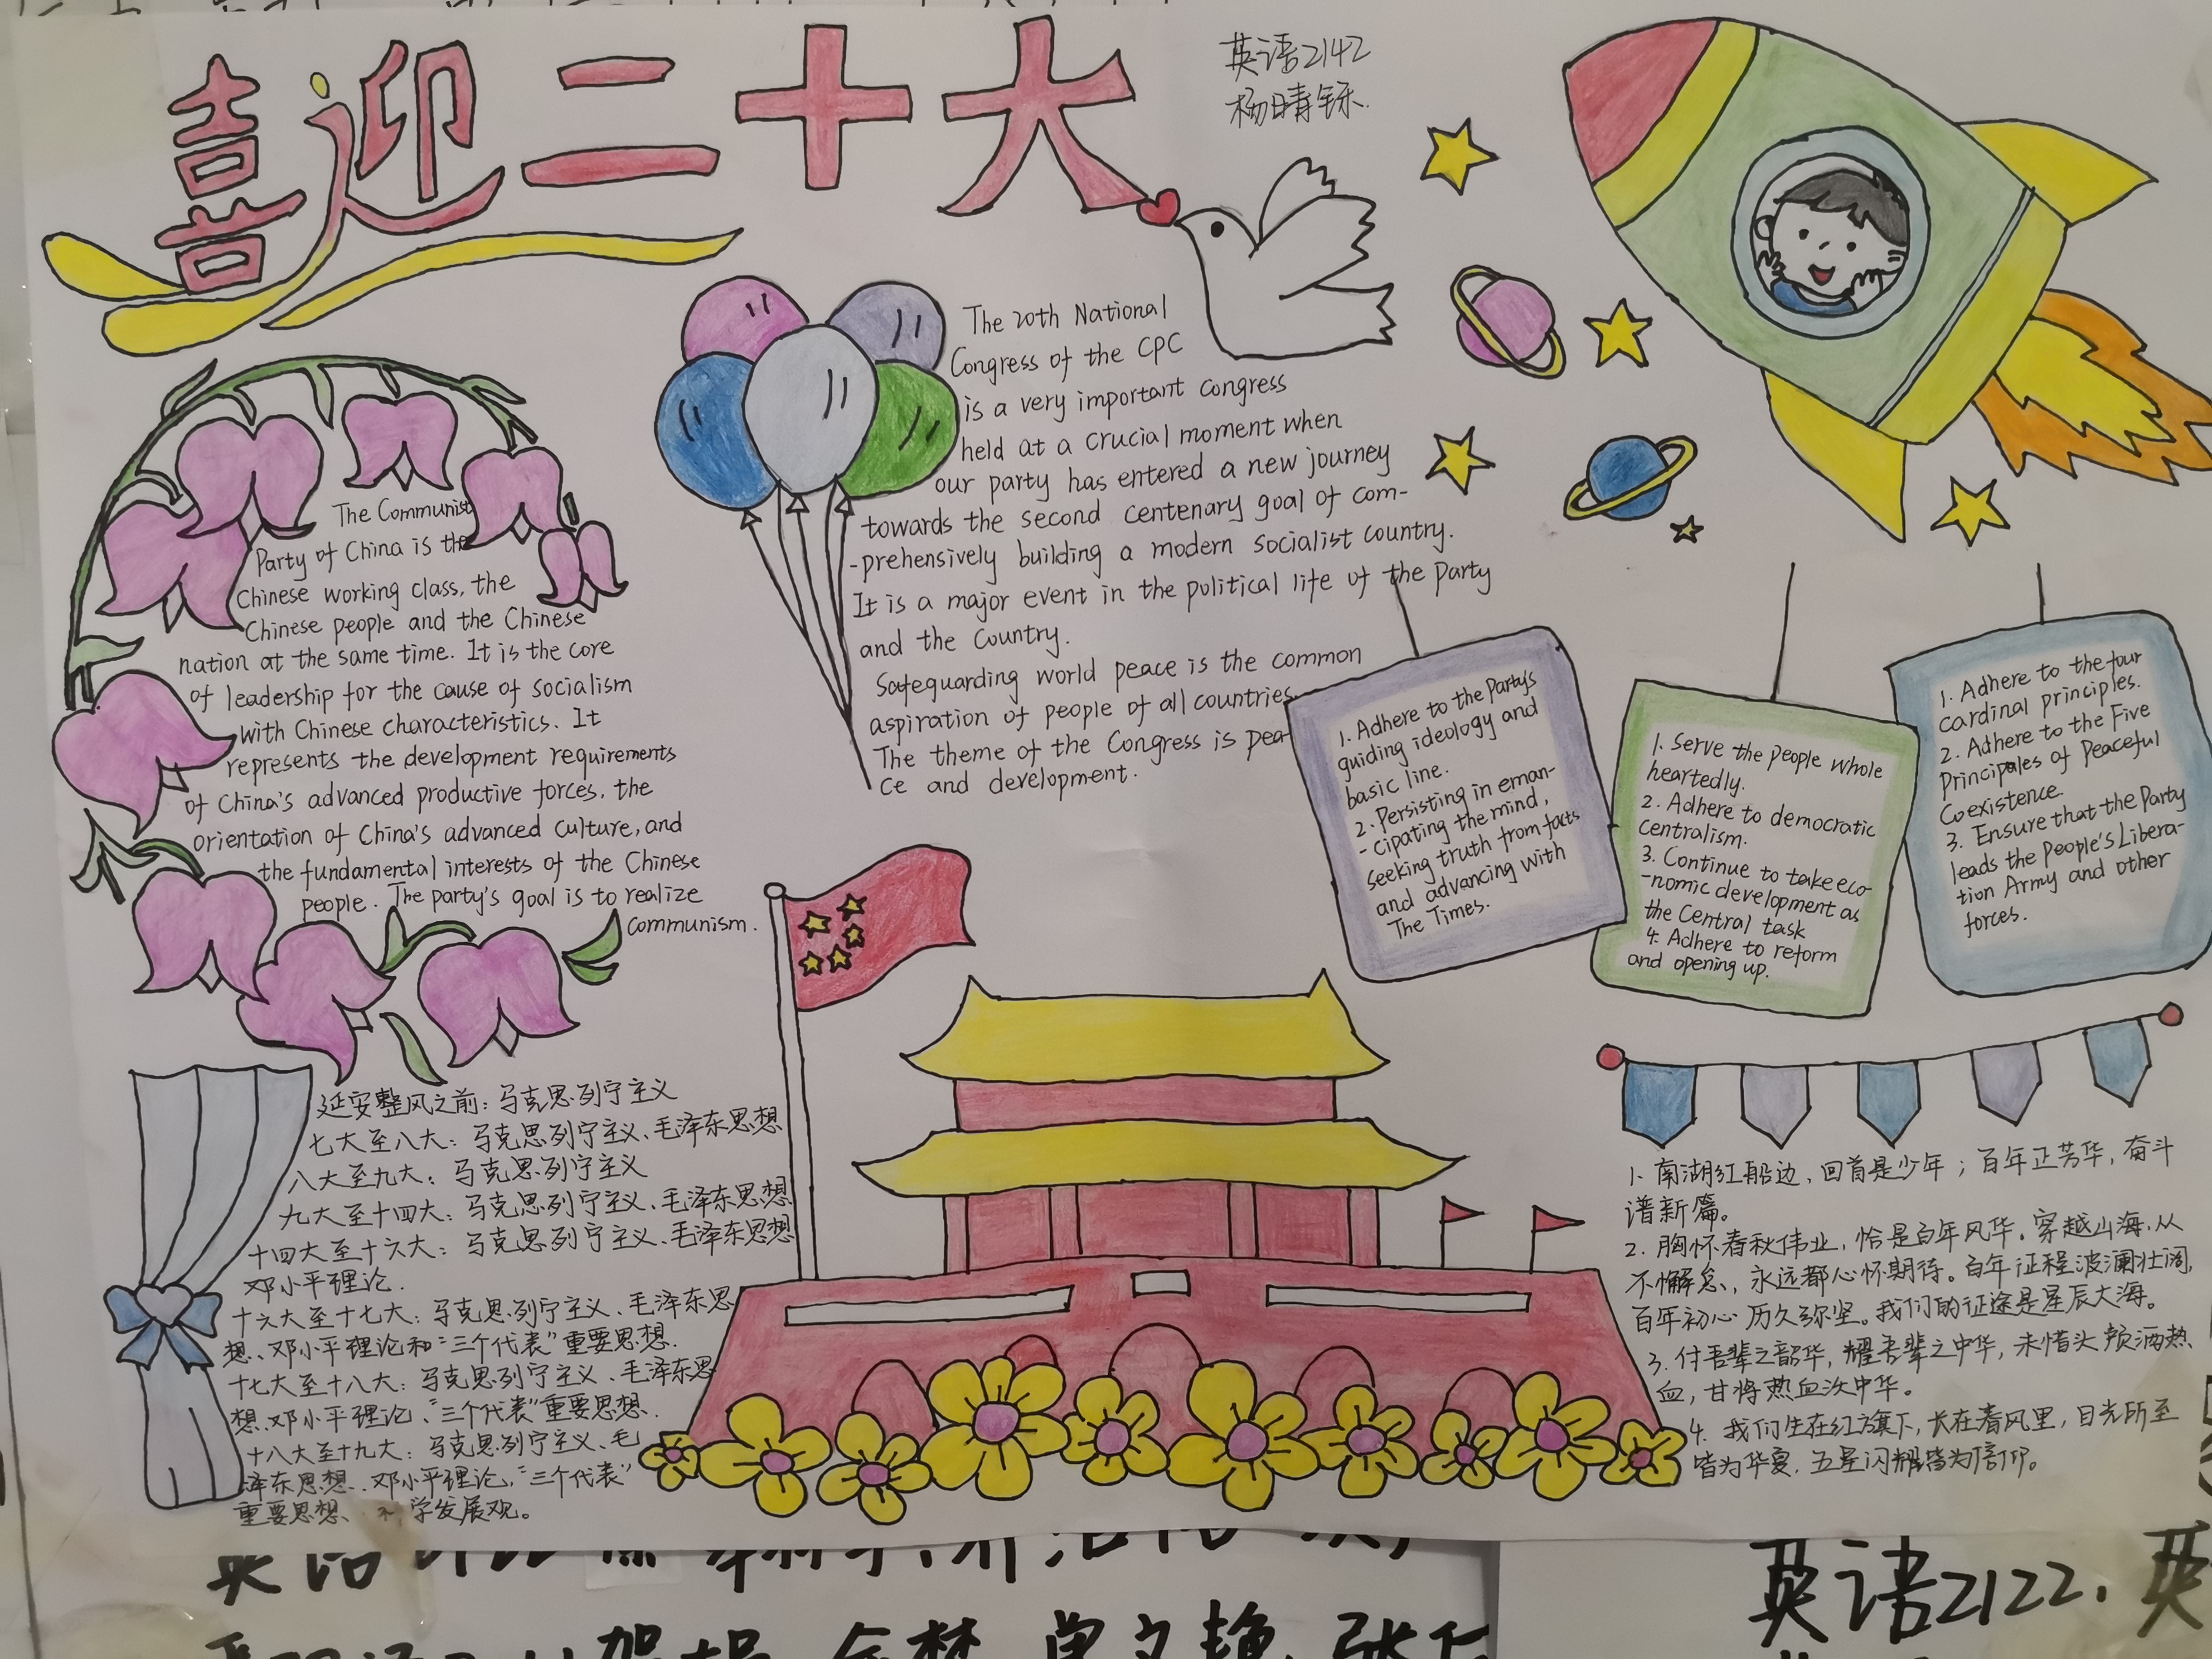 喜迎二十大
英语2142
杨晴铄
The Communist
Party of China is the
Chinese working class, the
Chinese people and the Chinese
nation at the same time. It is the core
of leadership for the cause of socialism
with Chinese characteristics. It
represents the development requirements
of China's advanced productive forces, the
orientation of China's advanced culture, and
the fundamental interests of the Chinese
people. The party's goal is to realize
communism.
The 20th National
Congress of the CPC
is a very important congress
held at a crucial moment when
our party has entered a new journey
towards the second centenary goal of com-
-prehensively building a modern socialist country.
It is a major event in the political life of the Party
and the Country.
Safeguarding world peace is the common
aspiration of people of all countries.
The theme of the Congress is pea-
ce and development.
1. Adhere to the Party's
guiding ideology and
basic line.
2. Persisting in eman-
-cipating the mind,
seeking truth from facts
and advancing with
The Times.
1. Serve the people whole
heartedly.
2. Adhere to democratic
centralism.
3. Continue to take eco-
-nomic development as
the Central task
4. Adhere to reform
and opening up.
1. Adhere to the four
cardinal principles.
2. Adhere to the Five
Principales of Peaceful
Coexistence.
3. Ensure that the Party
leads the People's Libera-
tion Army and other
forces.
延安整风之前：马克思列宁主义
七大至八大：马克思列宁主义、毛泽东思想
八大至九大：马克思列宁主义
九大至十四大：马克思列宁主义、毛泽东思想
十四大至十六大：马克思列宁主义、毛泽东思想
邓小平理论.
十六大至十七大：马克思列宁主义、毛泽东思
想、邓小平理论和“三个代表”重要思想.
十七大至十八大：马克思列宁主义、毛泽东思
想、邓小平理论、“三个代表”重要思想.
十八大至十九大：马克思列宁主义、毛
泽东思想、邓小平理论，“三个代表”
重要思想、科学发展观。
1. 南湖红船边，回首是少年；百年正芳华，奋斗
谱新篇。
2. 胸怀春秋伟业，恰是百年风华。穿越山海，从
不懈怠、永远都心怀期待。百年征程波澜壮阔，
百年初心历久弥坚。我们的征途是星辰大海。
3. 付吾辈之韶华，耀吾辈之中华，未惜头颅洒热
血，甘将热血沃中华。
4. 我们生在红旗下，长在春风里，目光所至
皆为华夏，五星闪耀皆为信仰。
英语2122. 英